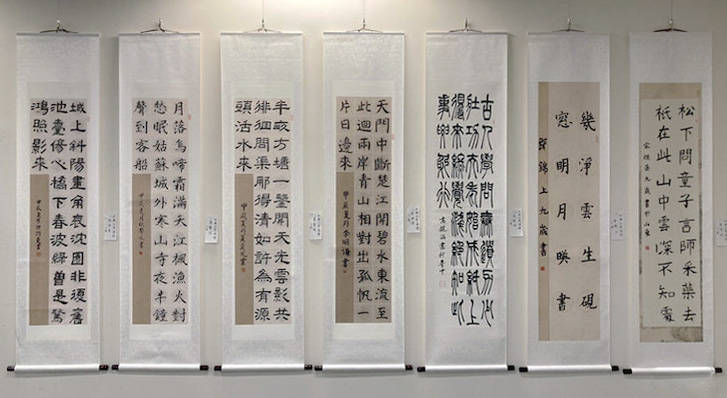 松下問童子言師采藥去
祇在此山中雲深不知處
幾淨雲生硯
窓明月映書
古人學問無遺力少
壯功夫老始成紙上
得來終覺淺絕知此
事要躬行
天門中斷楚江開碧水東流至
此迴兩岸青山相對出孤帆一
片日邊來
甲辰夏月李明謙書
半畝方塘一鑒開天光雲影共
徘徊問渠那得清如許為有源
頭活水來
月落烏啼霜滿天江楓漁火對
愁眠姑蘇城外寒山寺夜半鐘
聲到客船
城上斜陽畫角哀沈園非復舊
池臺傷心橋下春波綠曾是驚
鴻照影來